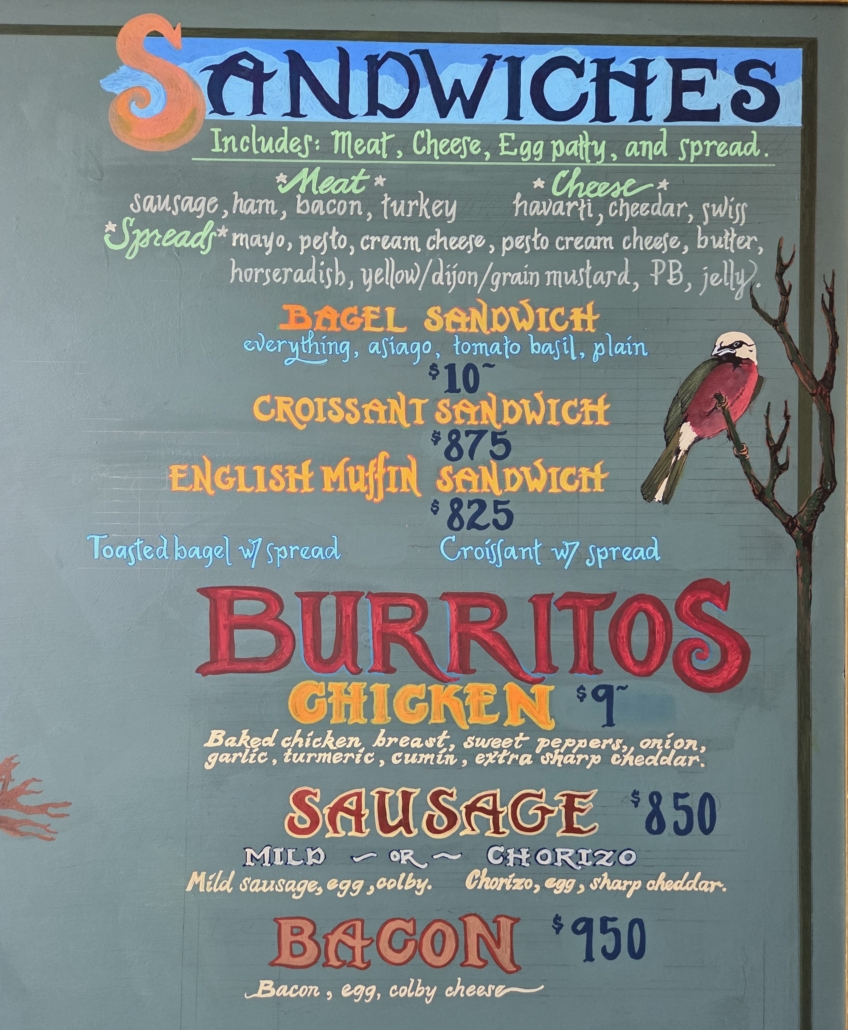 SANDWICHES
Includes: Meat, Cheese, Egg patty, and spread.
*Meat* *Cheese*
sausage, ham, bacon, turkey havarti, cheedar, swiss
*Spreads* mayo, pesto, cream cheese, pesto cream cheese, butter,
horseradish, yellow/dijon/grain mustard, PB, jelly.
BAGEL SANDWICH
everything, asiago, tomato basil, plain
$10~
CROISSANT SANDWICH
$875
ENGLISH Muffin SANDWICH
$825
Toasted bagel w/ spread Croissant w/ spread
BURRITOS
CHICKEN $9~
Baked chicken breast, sweet peppers, onion,
garlic, turmeric, cumin, extra sharp cheddar.
SAUSAGE $850
MILD ~ OR ~ CHORIZO
Mild sausage, egg, colby. Chorizo, egg, sharp cheddar.
BACON $950
Bacon, egg, colby cheese